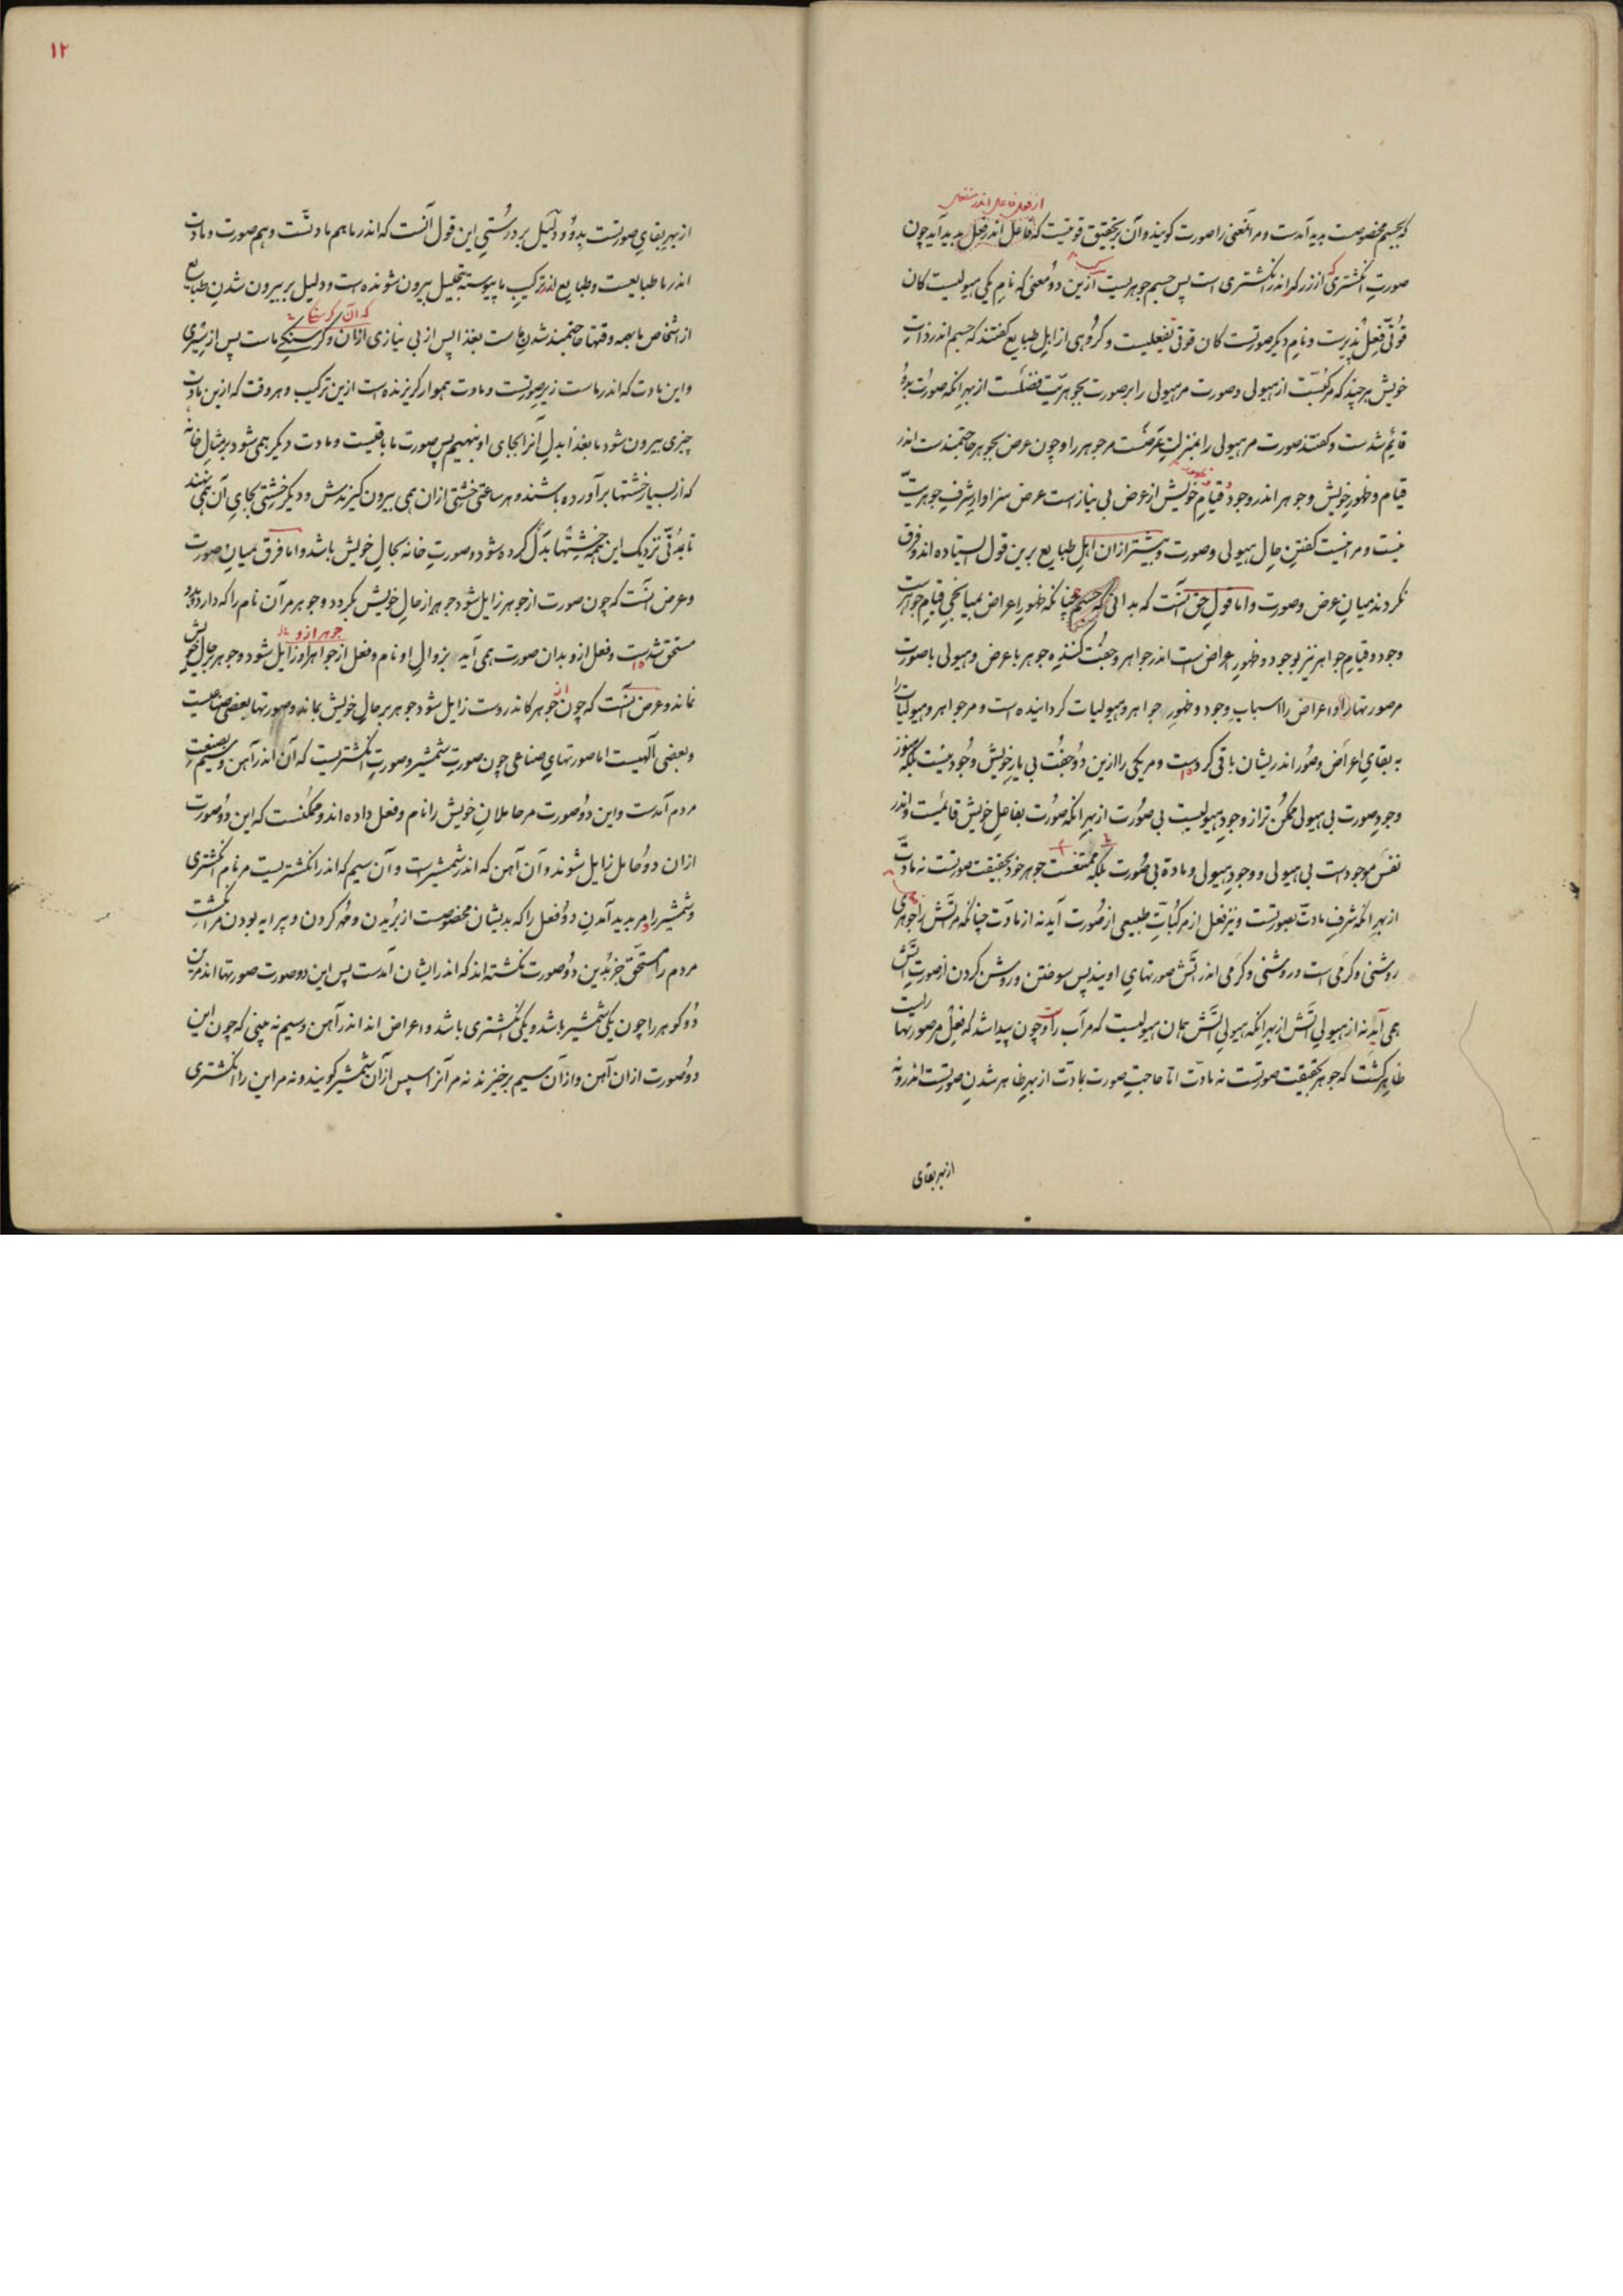 که بجسم مخصوصست پدید آمدست و مر آنمعنی را صورت گویند و آن بتحقیق قوتیست که فاعل اندر فعل پدید آید چون
از فعل فاعل اندر منفعل
صورت انگشتری که از زرگر اندر انگشتری است پس جسم جوهریست ازین دو معنی که نام یکی هیولیست کان
قوتی فعل پذیرست و نام دیگر صورتست کان قوتی تفعلیست و گروهی از اهل طبایع گفتند که جسم اندر ذات
خویش هر چند که مرکبست از هیولی و صورت مر هیولی را بر صورت بجوهریت فضلست از بهر انکه صورت بدو
قایم شدست و گفتند صورت مر هیولی را بمنزلت عرضست مر جوهر را و چون عرض بجوهر حاجتمندست اندر
قیام و ظهور خویش و جوهر اندر وجود و قیام خویش از عرض بی نیازست عرض سزاوار شرف جوهریت
نیست و مر اینست گفتن حال هیولی و صورت و بیشتر ازان اهل طبایع برین قول ایستاده اند و فرق
نکردند میان عرض و صورت و اما قول حق آنست که بدانی که چنانکه ظهور اعراض بمیانجی قیام جواهرست
وجود و قیام جواهر نیز بوجود و ظهور اعراض است اندر جواهر و جفت کننده جوهر با عرض و هیولی با صورت
مر صورتها را و اعراض را اسباب وجود و ظهور جواهر و هیولیات گردانیده است و مر جواهر و هیولیات را
به بقای اعراض و صور اندریشان باقی کردست و مر یکی را ازین دو جفت بی یار خویش وجود نیست بلکه هنوز
وجود صورت بی هیولی ممکن تر از وجود هیولیست بی صورت از بهر انکه صورت بفاعل خویش قائمست و اندر
نفس موجودست بی هیولی و وجود هیولی و مادة بی صورت بلکه ممتنعست جوهر خود بحقیقت صورتست نه مادت
از بهر انکه شرف مادت بصورتست و نیز فعل از مرکبات طبیعی از صورت آید نه از مادت چنانکه مر آتش را جوهری
روشنی و گرمی است و روشنی و گرمی اندر آتش صورتهای اویند پس سوختن و روشن کردن از صورت آتش
همی آید نه از هیولی آتش از بهر انکه هیولی آتش همان هیولیست که مر آب راست و چون پیدا شد که فعل مر صورتها راست
ظاهر گشت که جوهر بحقیقت صورتست نه مادت اما حاجت صورت بمادت از بهر ظاهر شدن صورتست اندرو نه
از بهر بقای
۱۲
از بهر بقای صورتست بدو و دلیل بر درستی این قول آنست که اندر ما هم مادتست و هم صورت و مادت
اندر ما طبایعست و طبایع اندر ترکیب ما پیوسته بتحلیل بیرون شونده است و دلیل بر بیرون شدن طبایع
که آن گرسنگی
از اشخاص ما بهمه وقتها حاجتمند شدن ماست بغذا پس از بی نیازی ازان و گرسنگی ماست پس از سیری
و این مادت که اندر ماست زیر صورتست و مادت هموار گریزنده است ازین ترکیب و هر وقت که ازین مادت
چیزی بیرون شود ما بغذا بدل آنرا بجای او بنهیم پس صورت ما باقیست و مادت دیگر همی شود بر مثال خانه
که از بسیار خشتها برآورده باشند و هر ساعتی خشتی ازان همی بیرون گیرندش و دیگر خشتی بجای آن همی نهند
تا بمدتی نزدیک این همه خشتها بدل کرده شود و صورت خانه بحال خویش باشد و اما فرق میان صورت
و عرض آنست که چون صورت از جوهر زایل شود جوهر از حال خویش بگردد و جوهر مر آن نام را که دارد بدو
جوهر ازو
مستحق شدست و فعل ازو بدان صورت همی آید بزوال او نام و فعل از جواهر او زایل شود و جوهر بحال خویش
نماند و عرض آنست که چون از جوهر کاندروست زایل شود جوهر بر حال خویش بماند و صورتها بعضی صناعیست
و بعضی آلهیست اما صورتهای صناعی چون صورت شمشیر و صورت انگشتریست که آن اندر آهن و سیم بصنعت
مردم آمدست و این دو صورت مر حاملان خویش را نام و فعل داده اند و ممکنست که این دو صورت
ازان دو حامل زایل شوند و آن آهن که اندر شمشیرست و آن سیم که اندر انگشتریست مر نام انگشتری
و شمشیر را و مر پدید آمدن دو فعل را که بدیشان مخصوصست از بریدن و مهر کردن و پیرایه بودن مر انگشت
مردم را مستحق جز بدین دو صورت نگشته اند که اندر ایشان آمدست پس این دو صورت صورتها اند مرین
دو گوهر را چون یکی شمشیر باشد و یکی انگشتری باشد و اعراض اند اندر آهن و سیم نه بینی که چون این
دو صورت ازان آهن و ازان سیم برخیزند نه مر آنرا سپس ازان شمشیر گویند و نه مر این را انگشتری